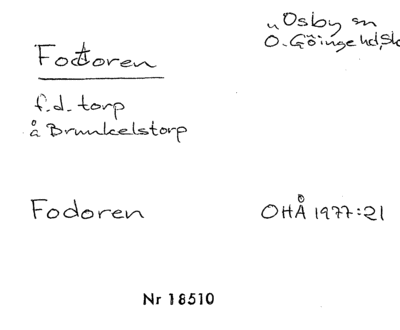 Osby sn
Ö. Göinge hd, Sk
Fodtoren
f.d. torp
å Brunkelstorp
Fodoren
OHÅ 1977:21
Nr 18510